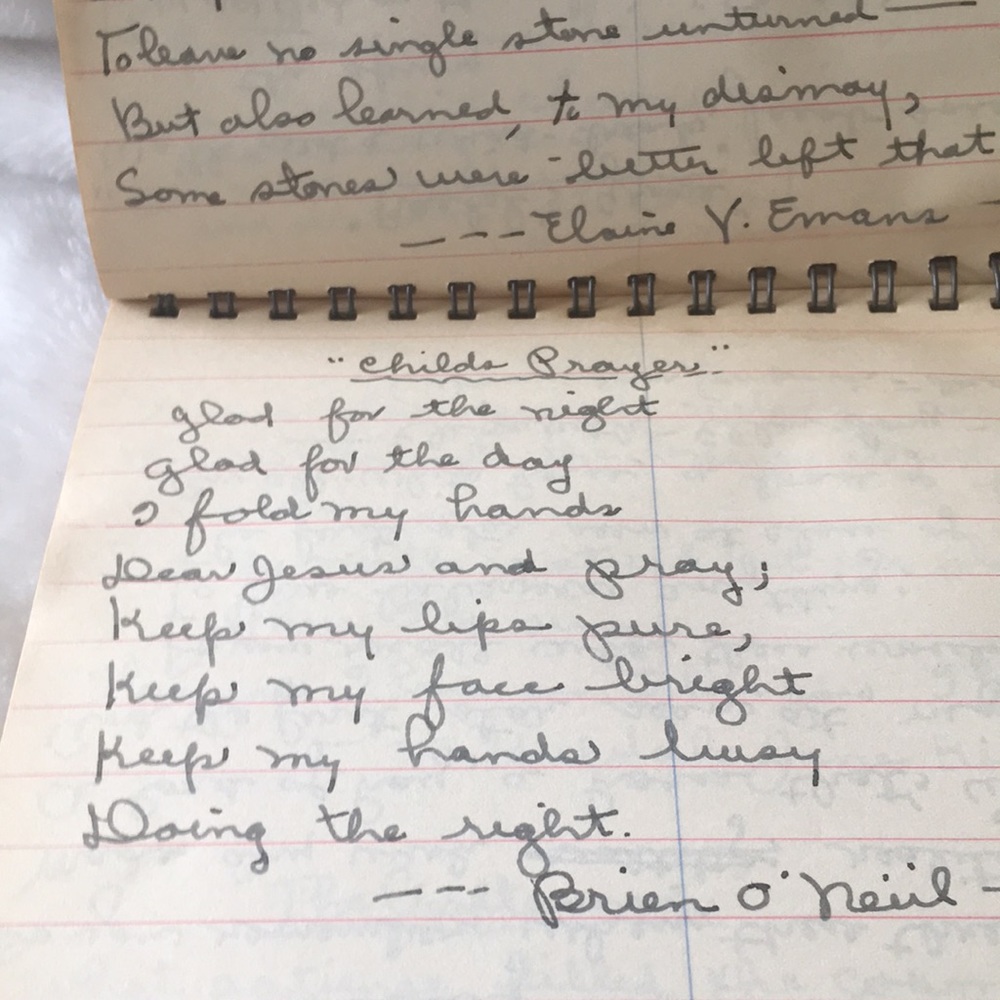 To leave no single stone unturned —
But also learned, to my dismay,
Some stones were better left that
--- Elaine V. Emans -
"Childs Prayer"
glad for the night
glad for the day
I fold my hands
Dear Jesus and pray;
Keep my lips pure,
Keep my face bright
Keep my hands busy
Doing the right.
--- Brien O'Neiil -